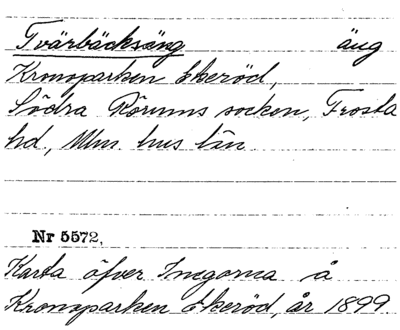 Tvärbäcksäng äng
Kronoparken Ekeröd,
Södra Rörums socken, Frosta
hd, Mlm hus län
Nr 5572,
Karta öfver Inegorna å
Kronoparken Ekeröd, år 1899